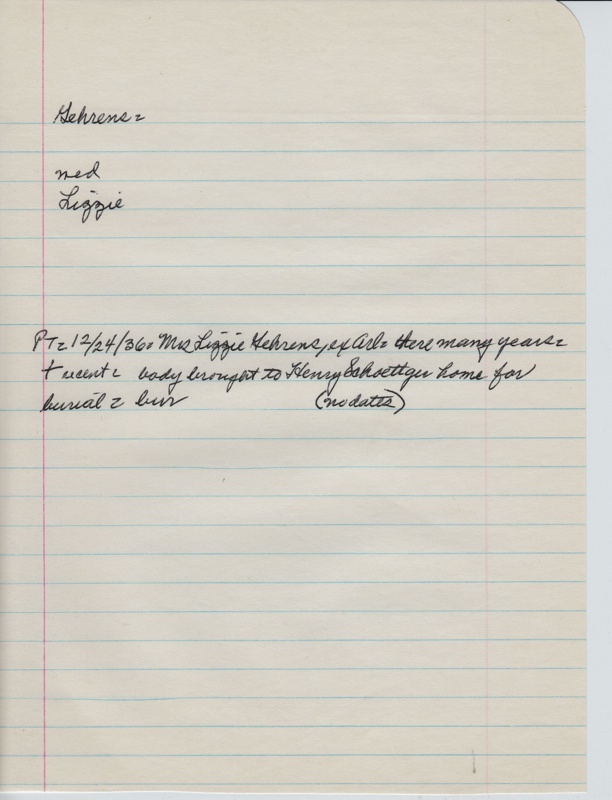 Gehrens =
med
Lizzie
PT = 12/24/36 = Mrs Lizzie Gehrens, ex Arl = there many years =
† recent = body brought to Henry Schoettger home for
burial = bur (no dates)